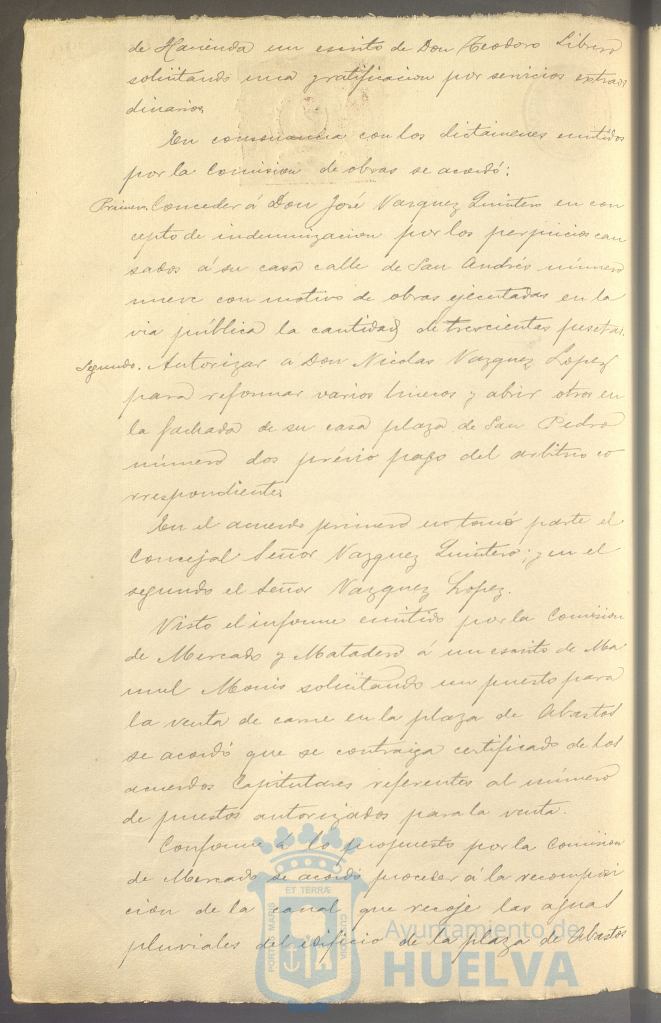 de Hacienda un escrito de Don Teodoro Librero
solicitando una gratificacion por servicios extraor
dinarios.
En consonancia con los dictámenes emitidos
por la Comision de obras se acordó:
Primero. Conceder á Don José Vazquez Quintero en con
cepto de indemnizacion por los perjuicios cau
sados á su casa calle de San Andrés número
nueve con motivo de obras ejecutadas en la
via pública la cantidad de trescientas pesetas.
Segundo. Autorizar a Don Nicolas Vazquez Lopez
para reformar varios huecos y abrir otros en
la fachada de su casa plaza de San Pedro
número dos prévio pago del arbitrio co
rrespondiente.
En el acuerdo primero no tomó parte el
Concejal Señor Vazquez Quintero; y en el
segundo el Señor Vazquez Lopez.
Visto el informe emitido por la Comision
de Mercado y Matadero á un escrito de Ma
nuel Monis solicitando un puesto para
la venta de carne en la plaza de Abastos
se acordó que se contraiga certificado de los
acuerdos Capitulares referentes al número
de puestos autorizados para la venta.
Conforme á lo propuesto por la Comision
de Mercado se acordó proceder á la recomposi
cion de la canal que recoje las aguas
pluviales del edificio de la plaza de Abastos
PORTUS MARIS ET TERRÆ CUSTODIA
Ayuntamiento de
HUELVA